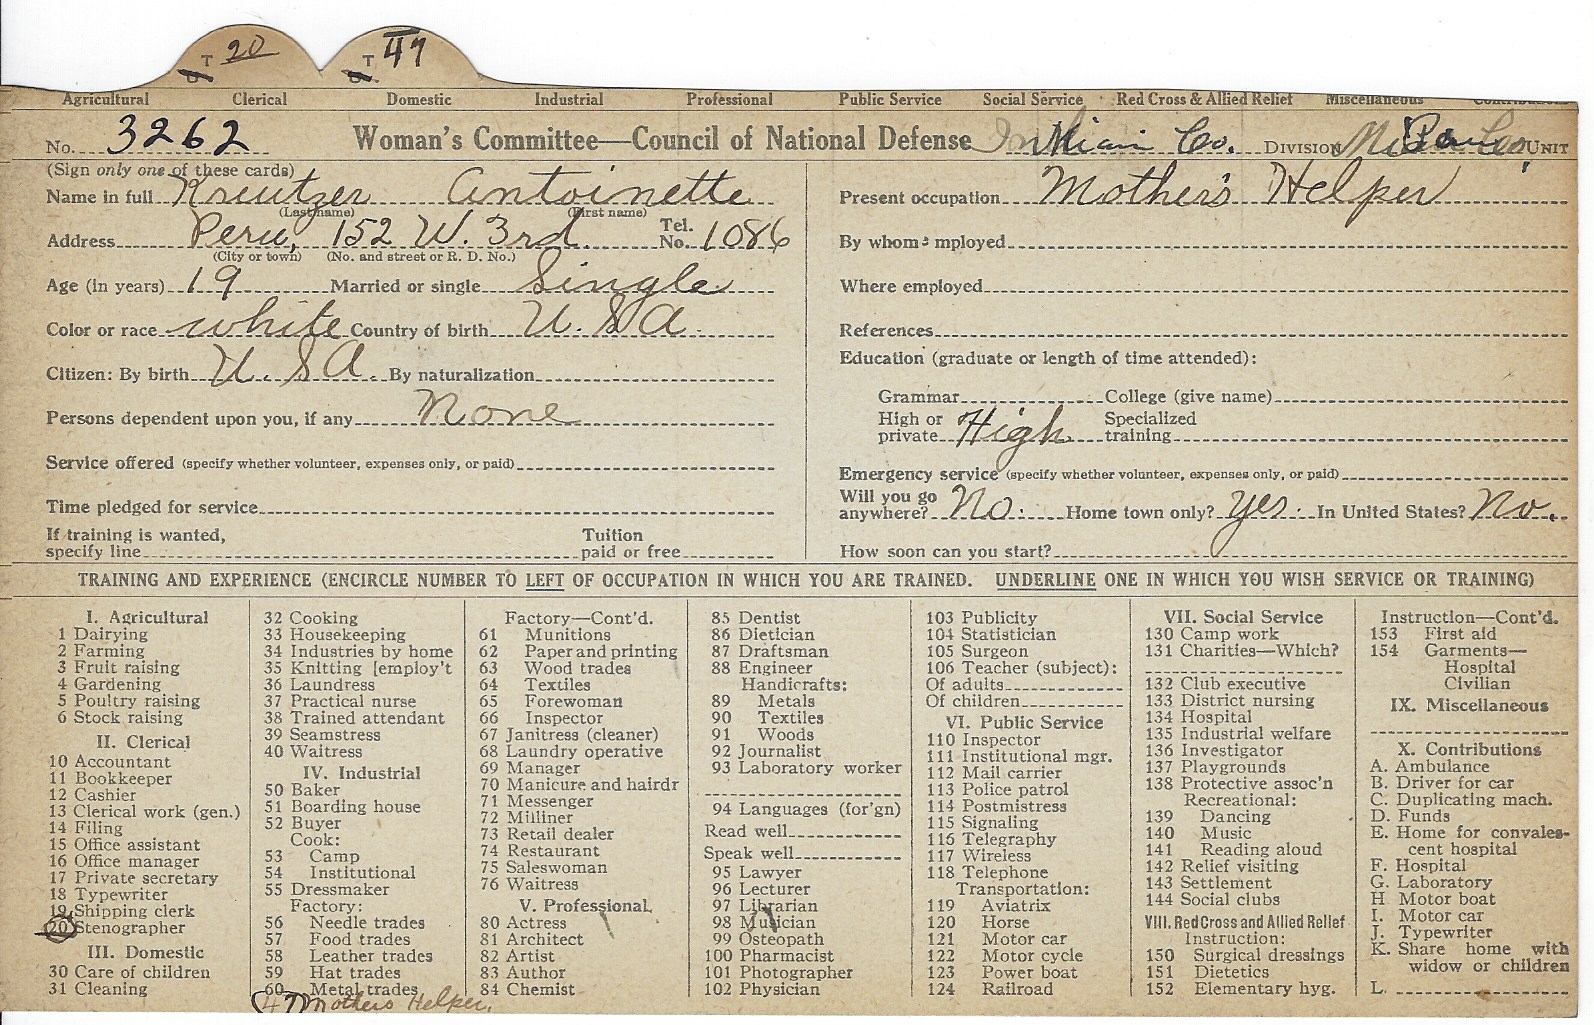 T 20 T 47
Agricultural Clerical Domestic Industrial Professional Public Service Social Service Red Cross & Allied Relief Miscellaneous Contributions
No. 3262 Woman's Committee—Council of National Defense Miami Co. DIVISION UNIT
(Sign only one of these cards)
Name in full Kreutzer Antoinette
(Last name) (First name)
Address Peru, 152 W. 3rd Tel. No. 1086
(City or town) (No. and street or R. D. No.)
Age (in years) 19 Married or single Single
Color or race white Country of birth U.S.A.
Citizen: By birth U.S.A. By naturalization
Persons dependent upon you, if any None
Service offered (specify whether volunteer, expenses only, or paid)
Time pledged for service
If training is wanted, specify line Tuition paid or free
Present occupation Mother's Helper
By whom employed
Where employed
References
Education (graduate or length of time attended):
Grammar College (give name)
High or private High Specialized training
Emergency service (specify whether volunteer, expenses only, or paid)
Will you go anywhere? No. Home town only? Yes. In United States? No.
How soon can you start?
TRAINING AND EXPERIENCE (ENCIRCLE NUMBER TO LEFT OF OCCUPATION IN WHICH YOU ARE TRAINED. UNDERLINE ONE IN WHICH YOU WISH SERVICE OR TRAINING)
I. Agricultural
1 Dairying
2 Farming
3 Fruit raising
4 Gardening
5 Poultry raising
6 Stock raising
II. Clerical
10 Accountant
11 Bookkeeper
12 Cashier
13 Clerical work (gen.)
14 Filing
15 Office assistant
16 Office manager
17 Private secretary
18 Typewriter
19 Shipping clerk
20 Stenographer
III. Domestic
30 Care of children
31 Cleaning
32 Cooking
33 Housekeeping
34 Industries by home
35 Knitting [employ't
36 Laundress
37 Practical nurse
38 Trained attendant
39 Seamstress
40 Waitress
IV. Industrial
50 Baker
51 Boarding house
52 Buyer
Cook:
53 Camp
54 Institutional
55 Dressmaker
Factory:
56 Needle trades
57 Food trades
58 Leather trades
59 Hat trades
60 Metal trades
47 Mothers Helper.
Factory—Cont'd.
61 Munitions
62 Paper and printing
63 Wood trades
64 Textiles
65 Forewoman
66 Inspector
67 Janitress (cleaner)
68 Laundry operative
69 Manager
70 Manicure and hairdr
71 Messenger
72 Milliner
73 Retail dealer
74 Restaurant
75 Saleswoman
76 Waitress
V. Professional
80 Actress
81 Architect
82 Artist
83 Author
84 Chemist
85 Dentist
86 Dietician
87 Draftsman
88 Engineer
Handicrafts:
89 Metals
90 Textiles
91 Woods
92 Journalist
93 Laboratory worker
94 Languages (for'gn)
Read well
Speak well
95 Lawyer
96 Lecturer
97 Librarian
98 Musician
99 Osteopath
100 Pharmacist
101 Photographer
102 Physician
103 Publicity
104 Statistician
105 Surgeon
106 Teacher (subject):
Of adults
Of children
VI. Public Service
110 Inspector
111 Institutional mgr.
112 Mail carrier
113 Police patrol
114 Postmistress
115 Signaling
116 Telegraphy
117 Wireless
118 Telephone
Transportation:
119 Aviatrix
120 Horse
121 Motor car
122 Motor cycle
123 Power boat
124 Railroad
VII. Social Service
130 Camp work
131 Charities—Which?
132 Club executive
133 District nursing
134 Hospital
135 Industrial welfare
136 Investigator
137 Playgrounds
138 Protective assoc'n
Recreational:
139 Dancing
140 Music
141 Reading aloud
142 Relief visiting
143 Settlement
144 Social clubs
VIII. Red Cross and Allied Relief
Instruction:
150 Surgical dressings
151 Dietetics
152 Elementary hyg.
Instruction—Cont'd.
153 First aid
154 Garments—
Hospital
Civilian
IX. Miscellaneous
X. Contributions
A. Ambulance
B. Driver for car
C. Duplicating mach.
D. Funds
E. Home for convales-
cent hospital
F. Hospital
G. Laboratory
H Motor boat
I. Motor car
J. Typewriter
K. Share home with
widow or children
L.